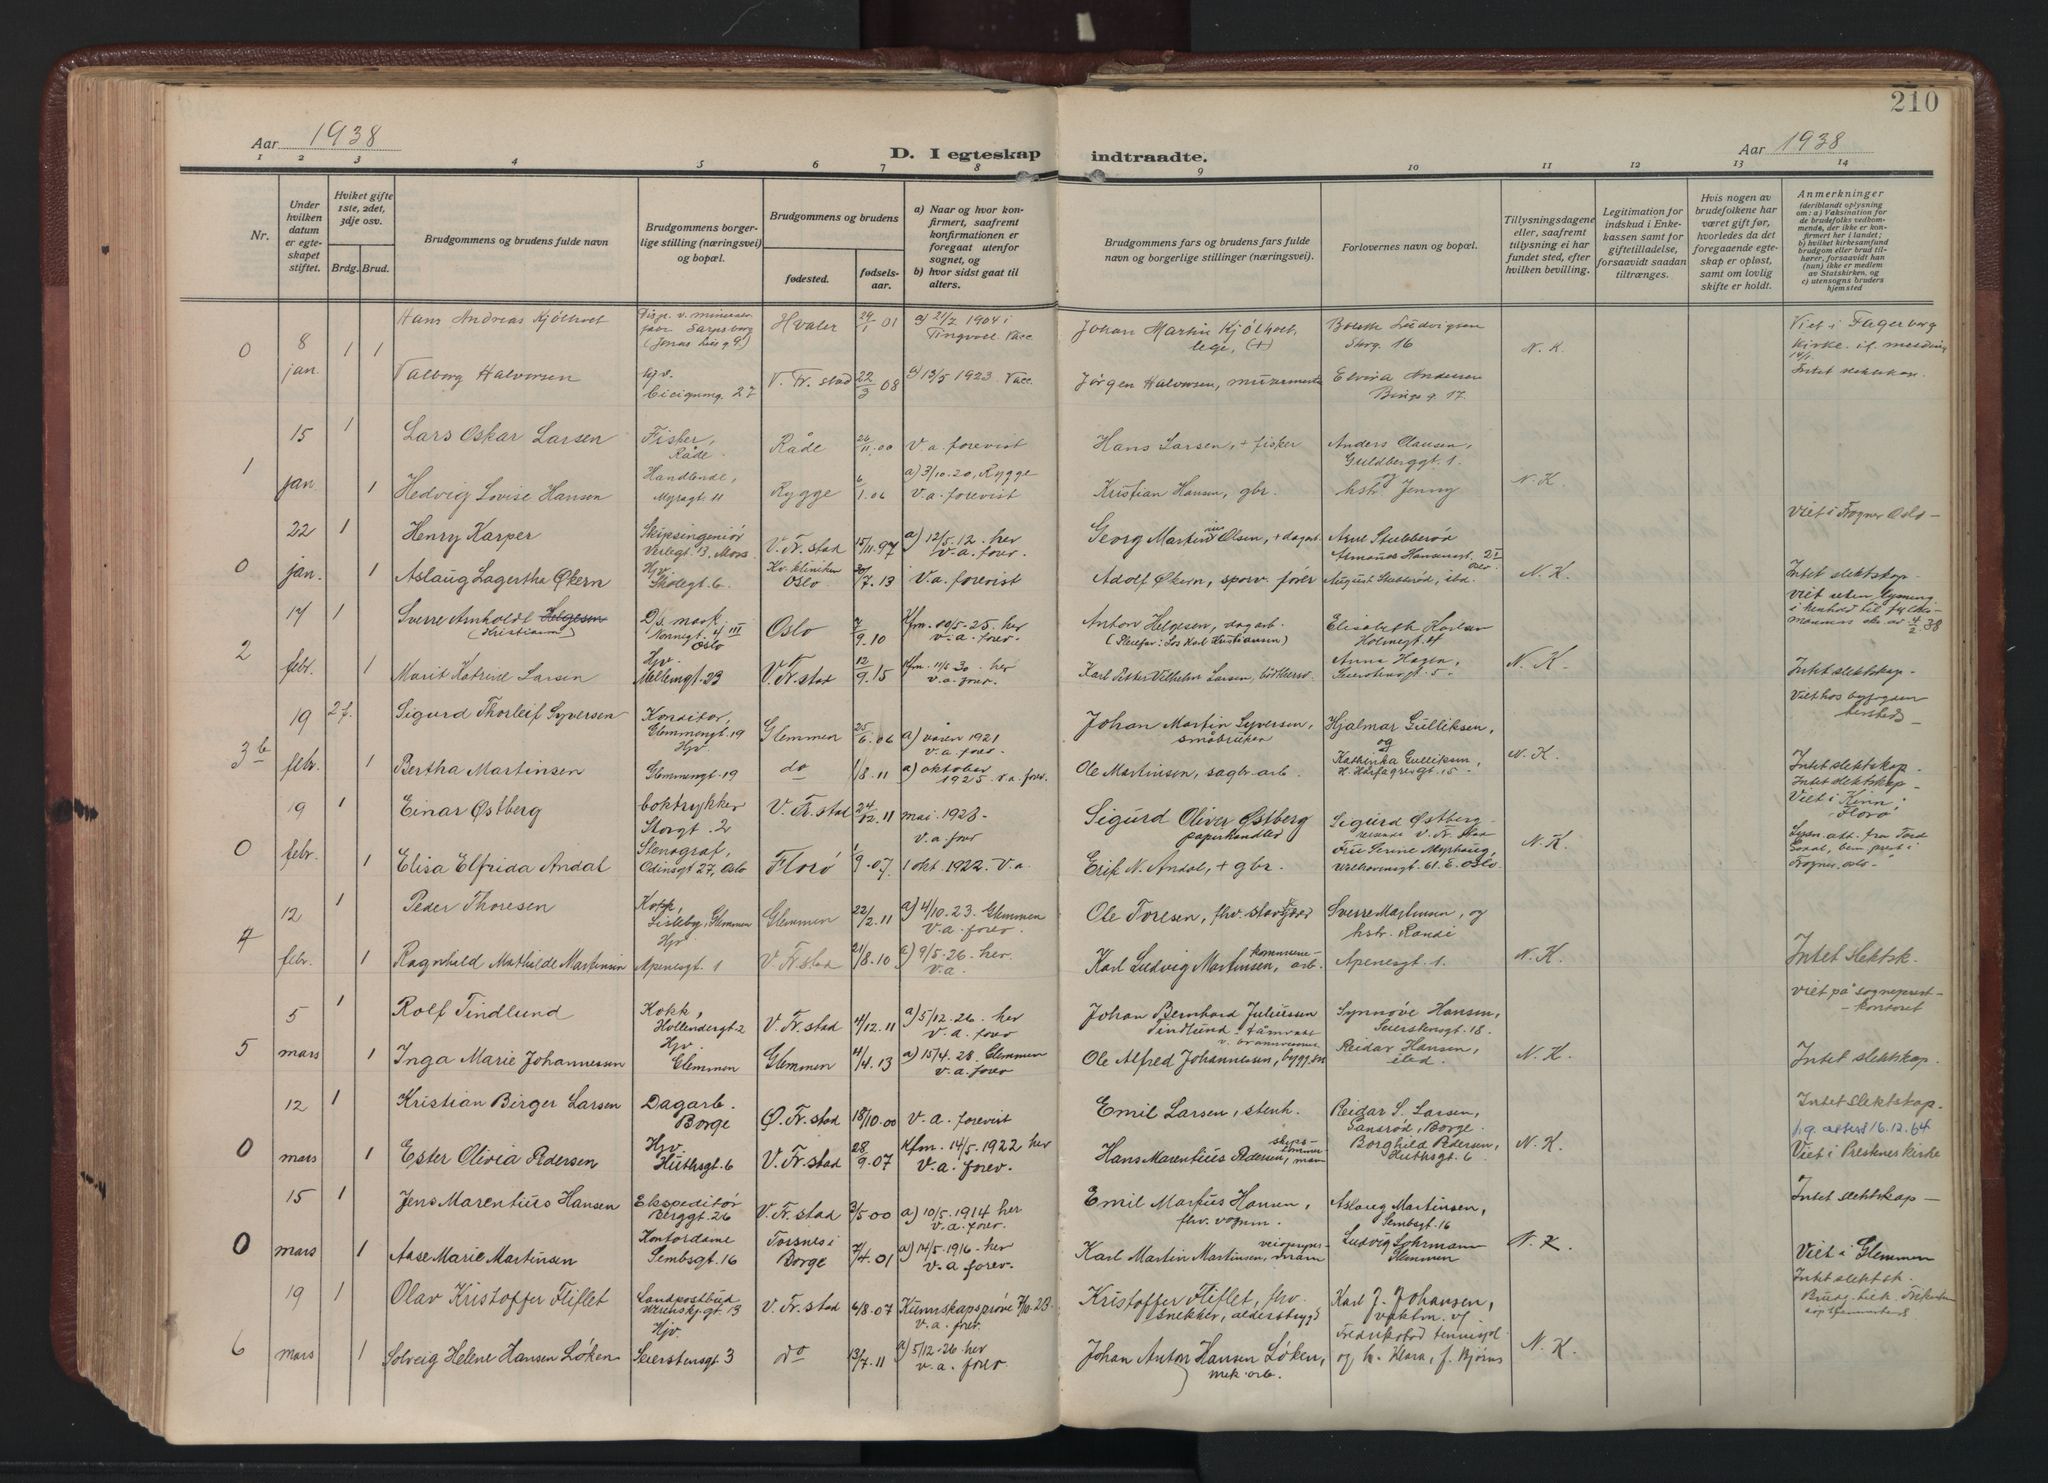 210
Aar 1938
D. I egteskap indtraadte.
Aar 1938
1 2 3 4 5 6 7 8 9 10 11 12 13 14
Nr.
Under hvilken datum er egteskapet stiftet.
Hvilket gifte 1ste, 2det, 3dje osv.
Brdg. Brud.
Brudgommens og brudens fulde navn
Brudgommens borgerlige stilling (næringsvei) og bopæl.
Brudgommens og brudens
fødested.
fødselsaar.
a) Naar og hvor konfirmert, saafremt konfirmationen er foregaat utenfor sognet, og
b) hvor sidst gaat til alters.
Brudgommens fars og brudens fars fulde navn og borgerlige stillinger (næringsvei).
Forlovernes navn og bopæl.
Tillysningsdagene eller, saafremt tillysning ei har fundet sted, efter hvilken bevilling.
Legitimation for indskud i Enkekassen samt for giftetilladelse, forsaavidt saadan tiltrænges.
Hvis nogen av brudefolkene har været gift før, hvorledes da det foregaaende egteskap er opløst, samt om lovlig skifte er holdt.
Anmerkninger
(deriblandt oplysning om: a) Vaksination for de brudefolks vedkommende, der ikke er konfirmert her i landet; b) hvilket kirkesamfund brudgom eller brud tilhører, forsaavidt han (hun) ikke er medlem av Statskirken, og c) utensogns bruders hjemsted
0 8 jan. 1 1
Hans Andreas Kjölholt
Sarpsborg
Hvaler 24/1 01
a) 21/7 1904 i Tingvoll. Vacc
Johan Martin Kjölholt, lege, (+)
Ludvigsen Storg. 16
N. K.
Viet i Fagerborg kirke. if. melding
Valborg Halvorsen
27
V. Fr. stad 22/3 08
a) 13/5 1923 Vacc.
Jörgen Halvorsen, murermester
Elvira Andersen
17.
Intet slektskap.
1 15 jan. 1 1
Lars Oskar Larsen
Fisker, Råde
Råde 26/11.00
V. a. forevist
Hans Larsen, + fisker
Anders Olausen, Guldberggt. 1.
Hedvig Lovise Hansen
Handlende, Myragt. 11
Rygge 6/1.06
a) 3/10.20, Rygge V. a. forevist
Kristian Hansen, gbr.
og hstr. Jenny
N. K.
0 22 jan. 1 1
Henry Karper
Skipsingeniör Verlegt. 13, Moss
V. Fr. stad 15/11.97
a) 12/5.12. her V. a. forev.
Georg Martinius Olsen, + dagarb
Arne Stubberöd
Viet i Frogner Oslo -
Aslaug Lagertha Økern
Hjv. Skolegt. 6.
Kv. kliniken Oslo 30/7.13
V. a. forevist
Adolf Økern, sporv. förer
N. K.
Intet slektskap-
2 17 febr. 1 1
Sverre Arnholdt Helgesen (Kristiansen)
D/s. mark. Oslo
Oslo 7/9.10
Kfm. 10/5.25. her v. a. forev.
Anton Helgesen, dagarb.
Elisabeth Karlsen Holmegt. 14
Marit Katrine Larsen
Hjv. Mellemgt. 23
V. Fr. stad 12/9.15
Kfm. 11/5 30. her v. a. forev.
Karl Petter Vilhelm Larsen,
Anna Hagen, Seierstensgt. 5.
N. K.
Intet slektskap-
3 b 19 febr. 2 f. 1
Sigurd Thorleif Syversen
Konditor, Glemmengt. 19
Glemmen 25/6.06
a) våren 1921 v. a. forev.
Johan Martin Syversen, småbruker
Hjalmar Gulliksen, og
Viet hos byfogden
Bertha Martinsen
Hjv Glemmengt. 19
do 1/8.11
a) oktober 1925. v. a. forev.
Ole Martinsen, sagbr. arb.
Kathinka Gulliksen, H. Hårfagresgt. 15.
N. K.
Intet slektskap-
0 19 febr. 1 1
Einar Østberg
boktrykker Storgt. 2
V. Fr. stad 24/12.11
mai. 1928- v. a. forev
Sigurd Oliver Østberg papirhandler
Sigurd Østberg V. Fr. stad
Intet slektskap- Viet i Kinn, Florö
Elisa Elfrida Andal
Stenograf, Odinsgt 27, Oslo
Florö 1/9.07.
1 okt. 1922. V. a.
Erik N. Andal, + gbr.
Fru Serine Myrhaug, Welhavensgt. 61. E. Oslo.
N. K.
4 12 febr. 1 1
Peder Thoresen
Kokk, Lisleby, Glemmen
Glemmen 22/2.11
a) 4/10.23. Glemmen v. a. forev.
Ole Toresen, fhv.
Sverre Martinsen, og hstr. Randi
Ragnhild Mathilde Martinsen
Hjv. Apenesgt. 1
V. Fr. stad 21/8.10
a) 9/5.26. her. v. a.
Karl Ludvig Martinsen, kommune-arb.
Apenesgt. 1.
N. K.
Intet slektsk.
5 5 mars 1 1
Rolf Tindlund
Kokk, Hollendergt. 2
V. Fr. stad 4/12.11
a) 5/12.26. her v. a. forev
Johan Bernhard Juliussen Tindlund
Synnöve Hansen, Seierstensgt. 18.
Viet på sogneprest-kontoret
Inga Marie Johannessen
Hjv. Glemmen
Glemmen 4/4.13
a) 15/4.28. Glemmen v. a. forev
Ole Alfred Johannessen,
Reidar Hansen, ibid.
N. K.
Intet slektskap.
0 12 mars 1 1
Kristian Birger Larsen
Dagarb. Borge
Ø. Fr. stad 18/10.00
V. a. forevist
Emil Larsen, stenh.
Reidar S. Larsen, Sansröd, Borge.
Intet slektskap-
16.12.64
Ester Olivia Pedersen
Hjv. Huthsgt. 6
V. Fr. stad 28/9.07
Kfm. 14/5.1922 her V. a. forev.
Hans Marentius Pedersen, skipstömmermann
Borghild Pedersen, Huthsgt. 6
N. K.
Viet i Prestnes kirke
0 15 mars 1 1
Jens Marentius Hansen
Ekspeditör Berggt. 26
V. Fr. stad 3/5.00
a) 10/5.1914 her v. a. forev.
Emil Markus Hansen, fhv. vognm.
Aslaug Martinsen, Sembsgt. 16
Intet slektskap -
Aase Marie Martinsen
Kontordame Sembsgt. 16
Torsnes i Borge 7/4.01
a) 14/5.1916. her v. a. forev.
Karl Martin Martinsen, veiopsyns-mann
Ludvig Lohrmann Glemmen
N. K.
Viet i Glemmen
6 19 mars 1 1
Olav Kristoffer Fliflet
Landpostbud Werenskj.gt. 13
V. Fr. stad 6/8.07
Kunnskapspröve 7/10.23. v. a. forev.
Kristoffer Fliflet, fhv. snekker, alderstrygd
Karl J. Johansen, vaktm. v/
Intet slektsk.
Solveig Helene Hansen Löken
Hjv. Seierstensgt. 3
do 13/7.11
a) 5/12.26. her v. a. forev.
Johan Anton Hansen Löken, mek. arb.
Fredrikstad og h. Klara, f. Björns
N. K.